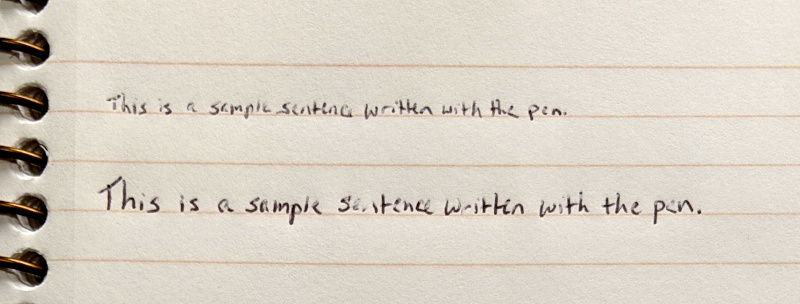 This is a sample sentence written with the pen.
This is a sample sentence written with the pen.